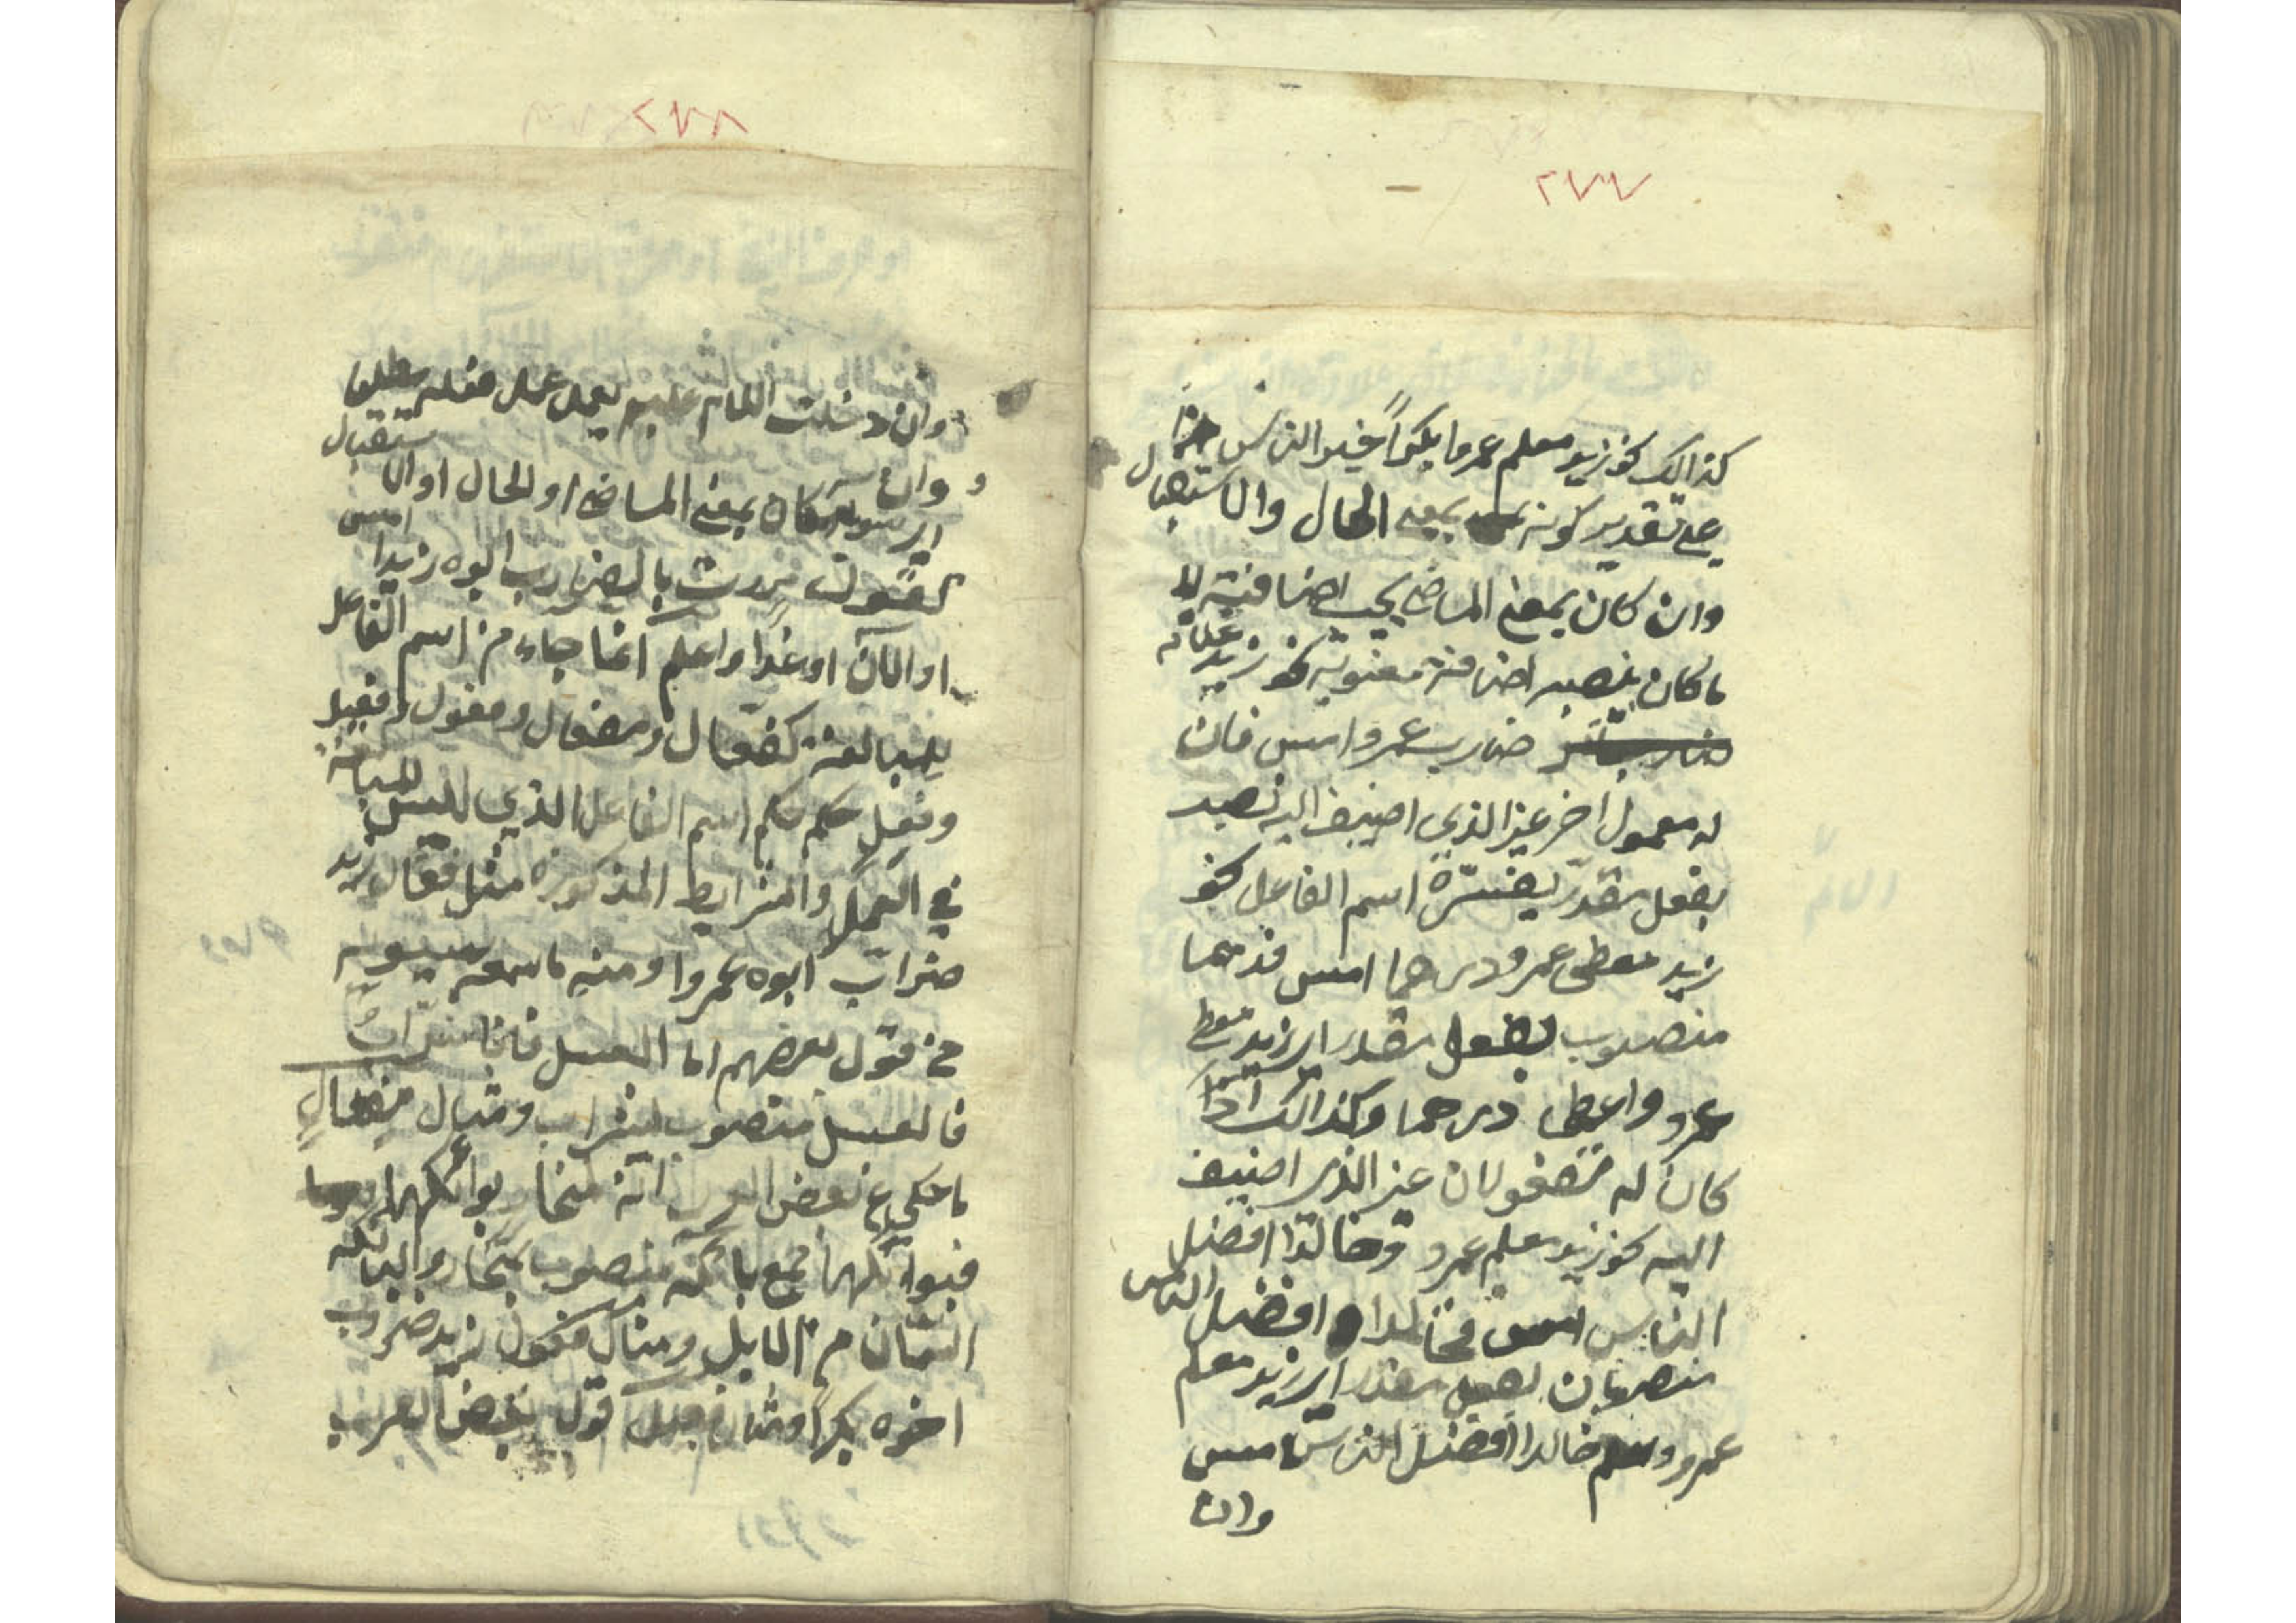 ٢٧٧
كذالك نحو زيد معلم عمروا بكراً خير الناس هذا
على تقدير كونه بمعنى الحال والاستقبال
وان كان بمعنى الماضي يجب اضافته الى
ما كان ينصبه اضافة معنوية نحو زيد
ضارب عمرو امس فان
له معمول اخر غير الذي اضيف اليه نصبه
بفعل مقدّر يفسّره اسم الفاعل نحو
زيد معطى عمرو درهما امس فدرهما
منصوب بفعل مقدر اي زيد معطى
عمرو واعطى درهما وكذالك اذا
كان له مفعولان غير الذي اضيف
اليه نحو زيد معلم عمرو خالدا افضل
الناس امس فخالدا وافضل الناس
منصوبان بفعل مقدر اي زيد معلم
عمرو وعلم خالدا افضل الناس امس
وان
٢٧٨
وان دخلت اللام عليه يعمل عمل فعله مطلقا
وان كان بمعنى الماضي او الحال او الاستقبال
كقولك مررت بالضارب ابوه زيدا امس
او الآن او غدًا واعلم انما جاء من اسم الفاعل
للمبالغة كفعّال ومفعال وفعول وفعيل
وفعل حكم حكم اسم الفاعل الذي لليس للمبالغة
في العمل والشرايط المذكورة مثل فعّال زيد
ضرّاب ابوه عمروا ومنه ما سمعه سيبويه
من قول بعضهم اما العسل فانا شرّاب
فالعسل منصوب بشراب ومثال مفعال
ما حكي عن بعض العرب انّه منحار بوائكها
فبوائكها جمع بائكة منصوب بمنحار والبائكة
السّمان من الابل ومثال فعول زيد ضروب
اخوه بكراً ومثال فعيل قول بعض العرب